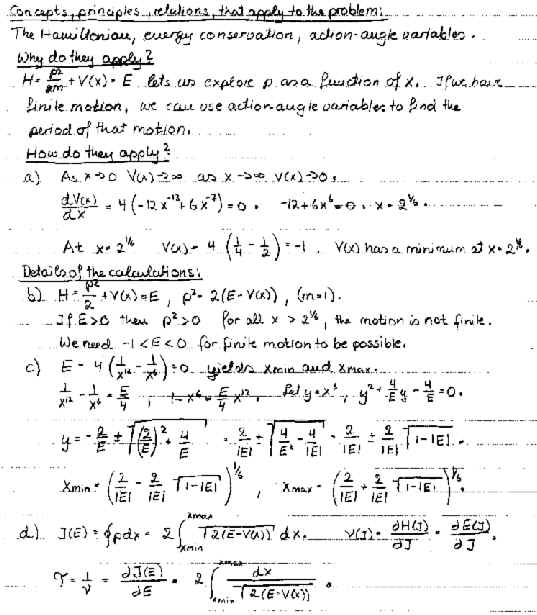 Concepts, principles, relations, that apply to the problem:
The Hamiltonian, energy conservation, action-angle variables.
Why do they apply?
H = p²/2m + V(x) = E lets us explore p as a function of x. If we have
finite motion, we can use action angle variables to find the
period of that motion.
How do they apply?
a) As x→0 V(x)→∞ as x→∞ V(x)→0.
dV(x)/dx = 4(-12x⁻¹³+6x⁻⁷) = 0. -12+6x⁶=0. x = 2^(1/6).
At x = 2^(1/6) V(x) = 4(1/4 - 1/2) = -1. V(x) has a minimum at x = 2^(1/6).
Details of the calculations:
b) H = p²/2 + V(x) = E, p² = 2(E-V(x)), (m=1).
If E>0 then p²>0 for all x > 2^(1/6), the motion is not finite.
We need -1<E<0 for finite motion to be possible.
c) E - 4(1/x¹² - 1/x⁶) = 0 yields xmin and xmax.
1/x¹² - 1/x⁶ = E/4, 1-x⁶ = E/4 x¹², let y = x⁶, y² + 4/E y - 4/E = 0.
y = -2/E ± √((2/E)² + 4/E) = 2/|E| ± √(4/E² - 4/|E|) = 2/|E| ± 2/|E| √(1-|E|).
xmin = (2/|E| - 2/|E| √(1-|E|))^(1/6), xmax = (2/|E| + 2/|E| √(1-|E|))^(1/6).
d.) J(E) = ∮pdx = 2∫xmin^xmax √(2(E-V(x))) dx. ν(J) = ∂H(J)/∂J = ∂E(J)/∂J.
τ = 1/ν = ∂J(E)/∂E = 2∫xmin^xmax dx/√(2(E-V(x))).